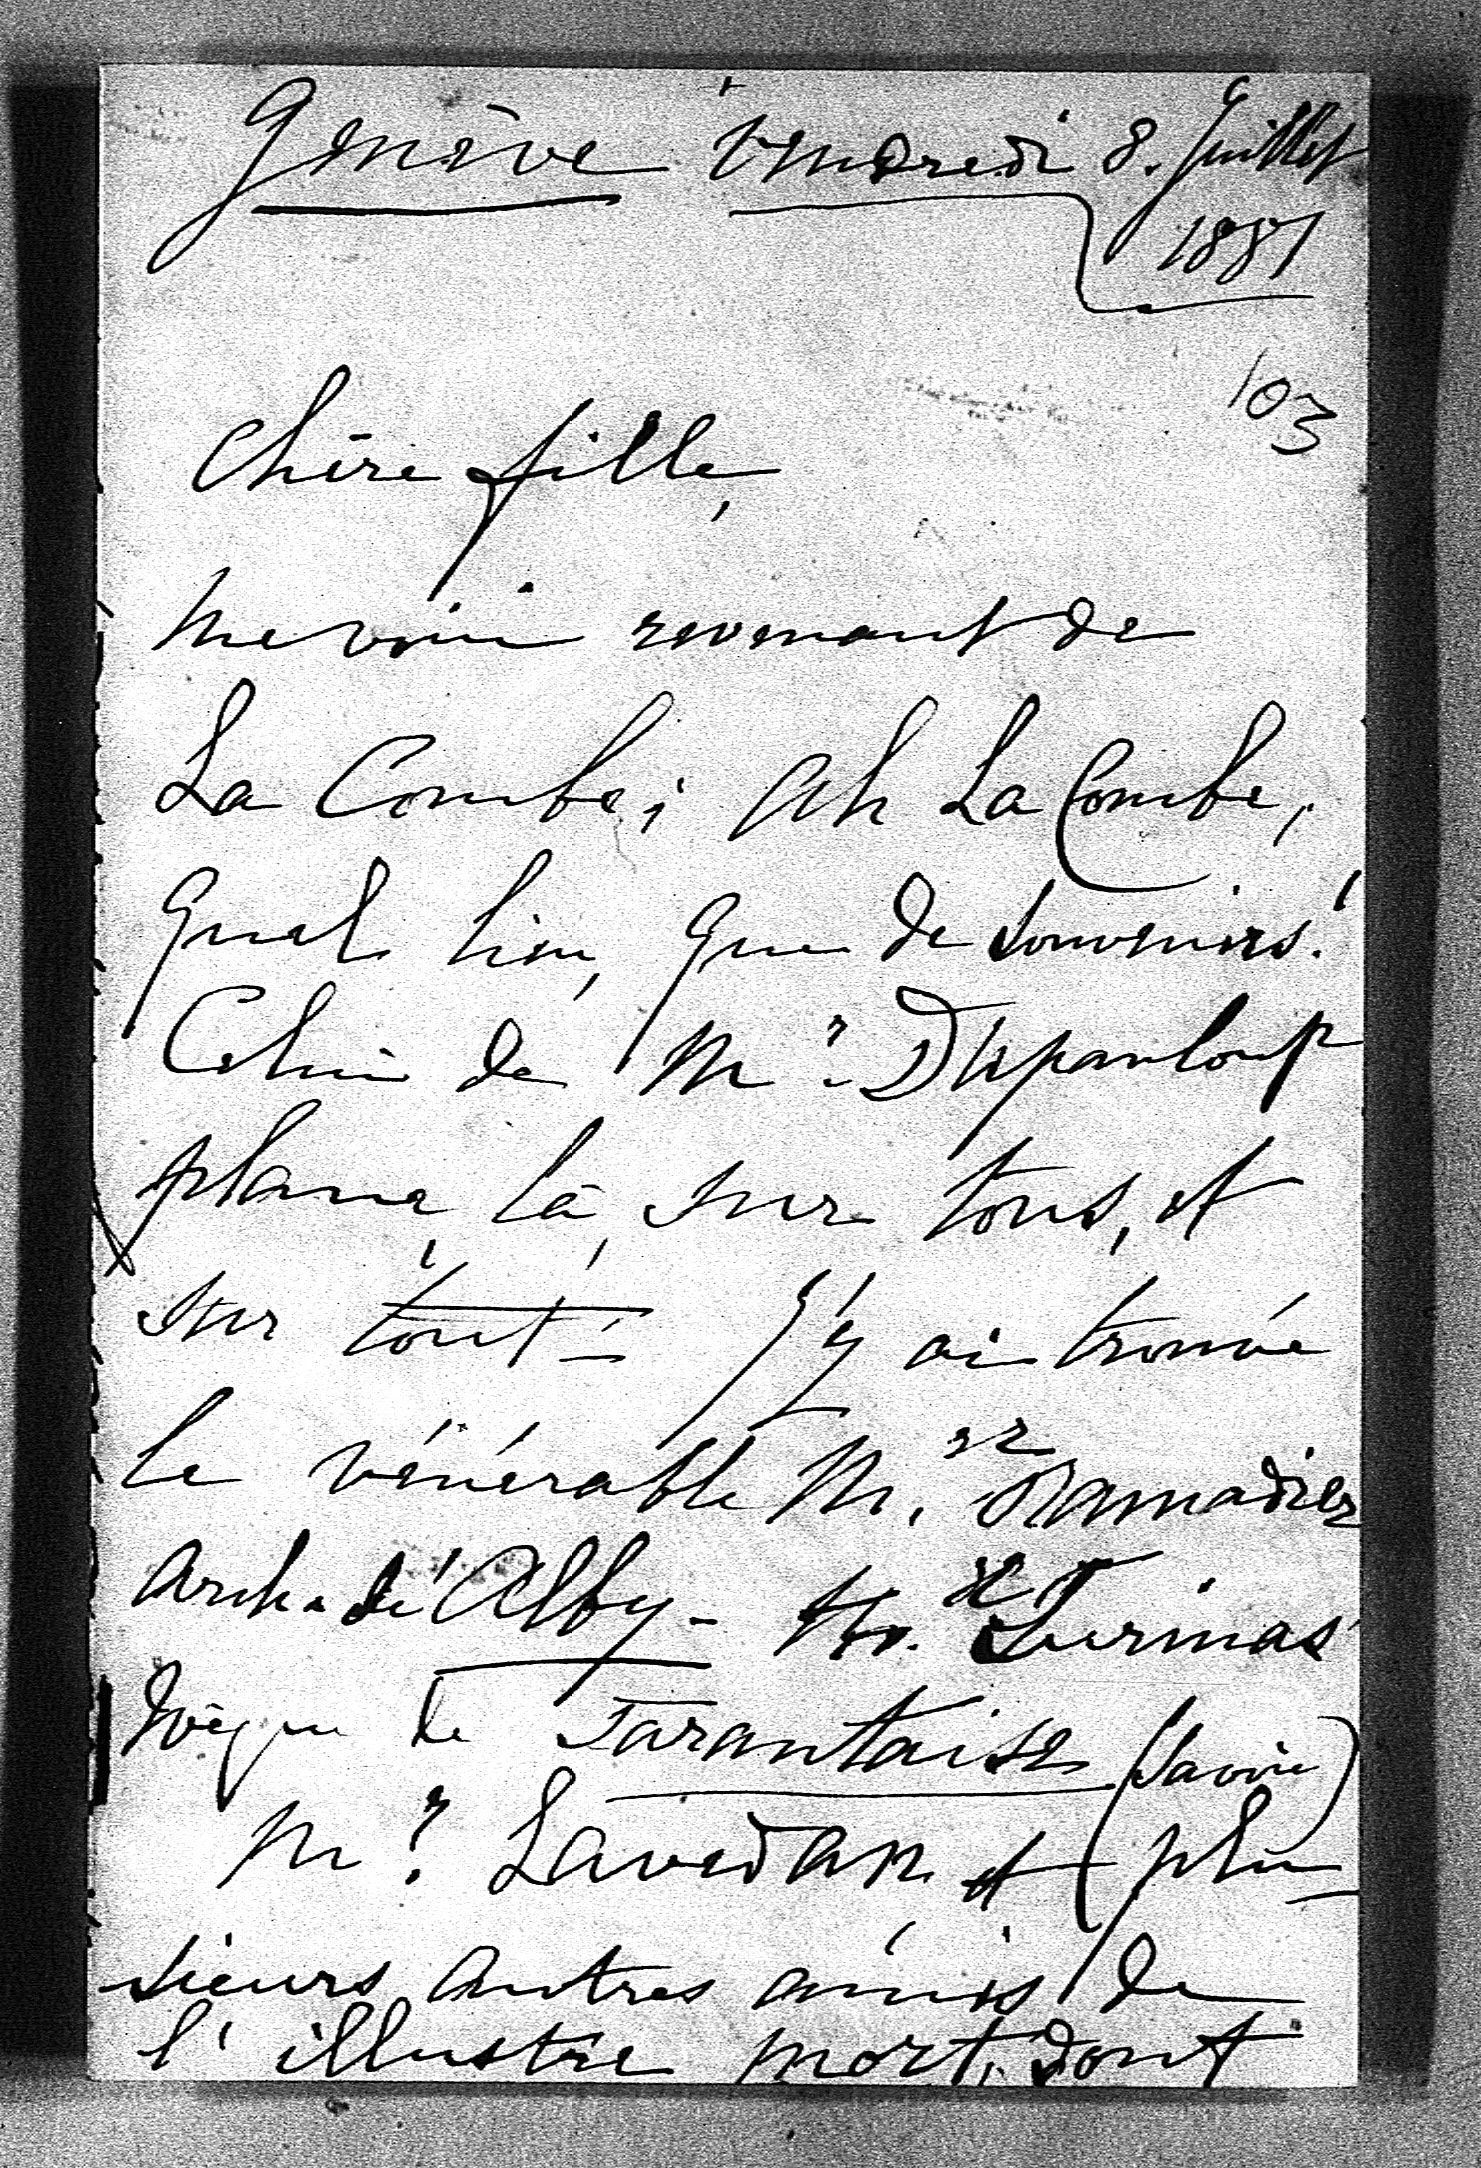 Genève Vendredi 8. Juillet
1881
103
Chère fille,
me voici revenant de
La Combe; Ah La Combe,
quel lieu, que de souvenirs!
Celui de Mr. Dupanloup
plane, là, sur tous, et
sur tout – J'y ai trouvé
le vénérable M. gr Ramadier
Arch. d'Alby – Turinas
Evêque de Tarantaise (Savoie)
Mr. Lavedan et plu-
sieurs autres amis de
l'illustre mort, dont